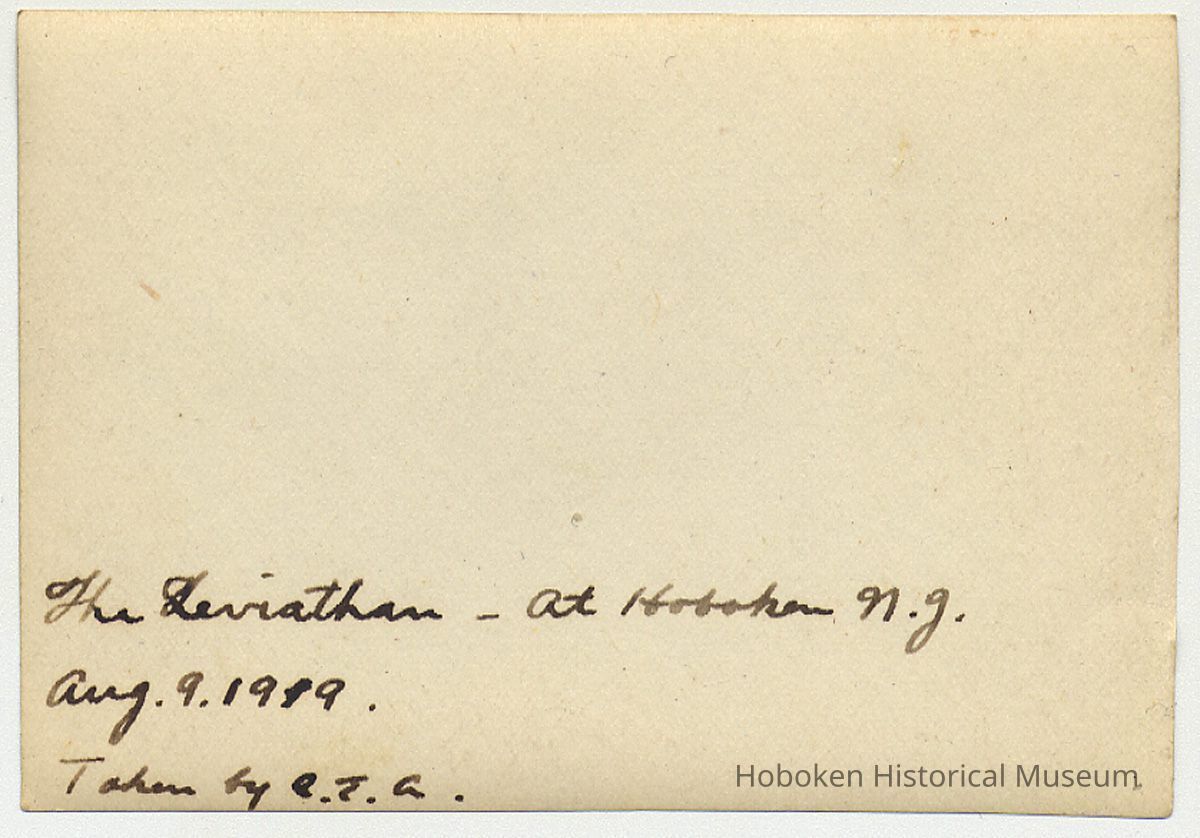 The Leviathan - at Hoboken N.J.
Aug. 9. 1919.
Taken by C.I.A.
Hoboken Historical Museum